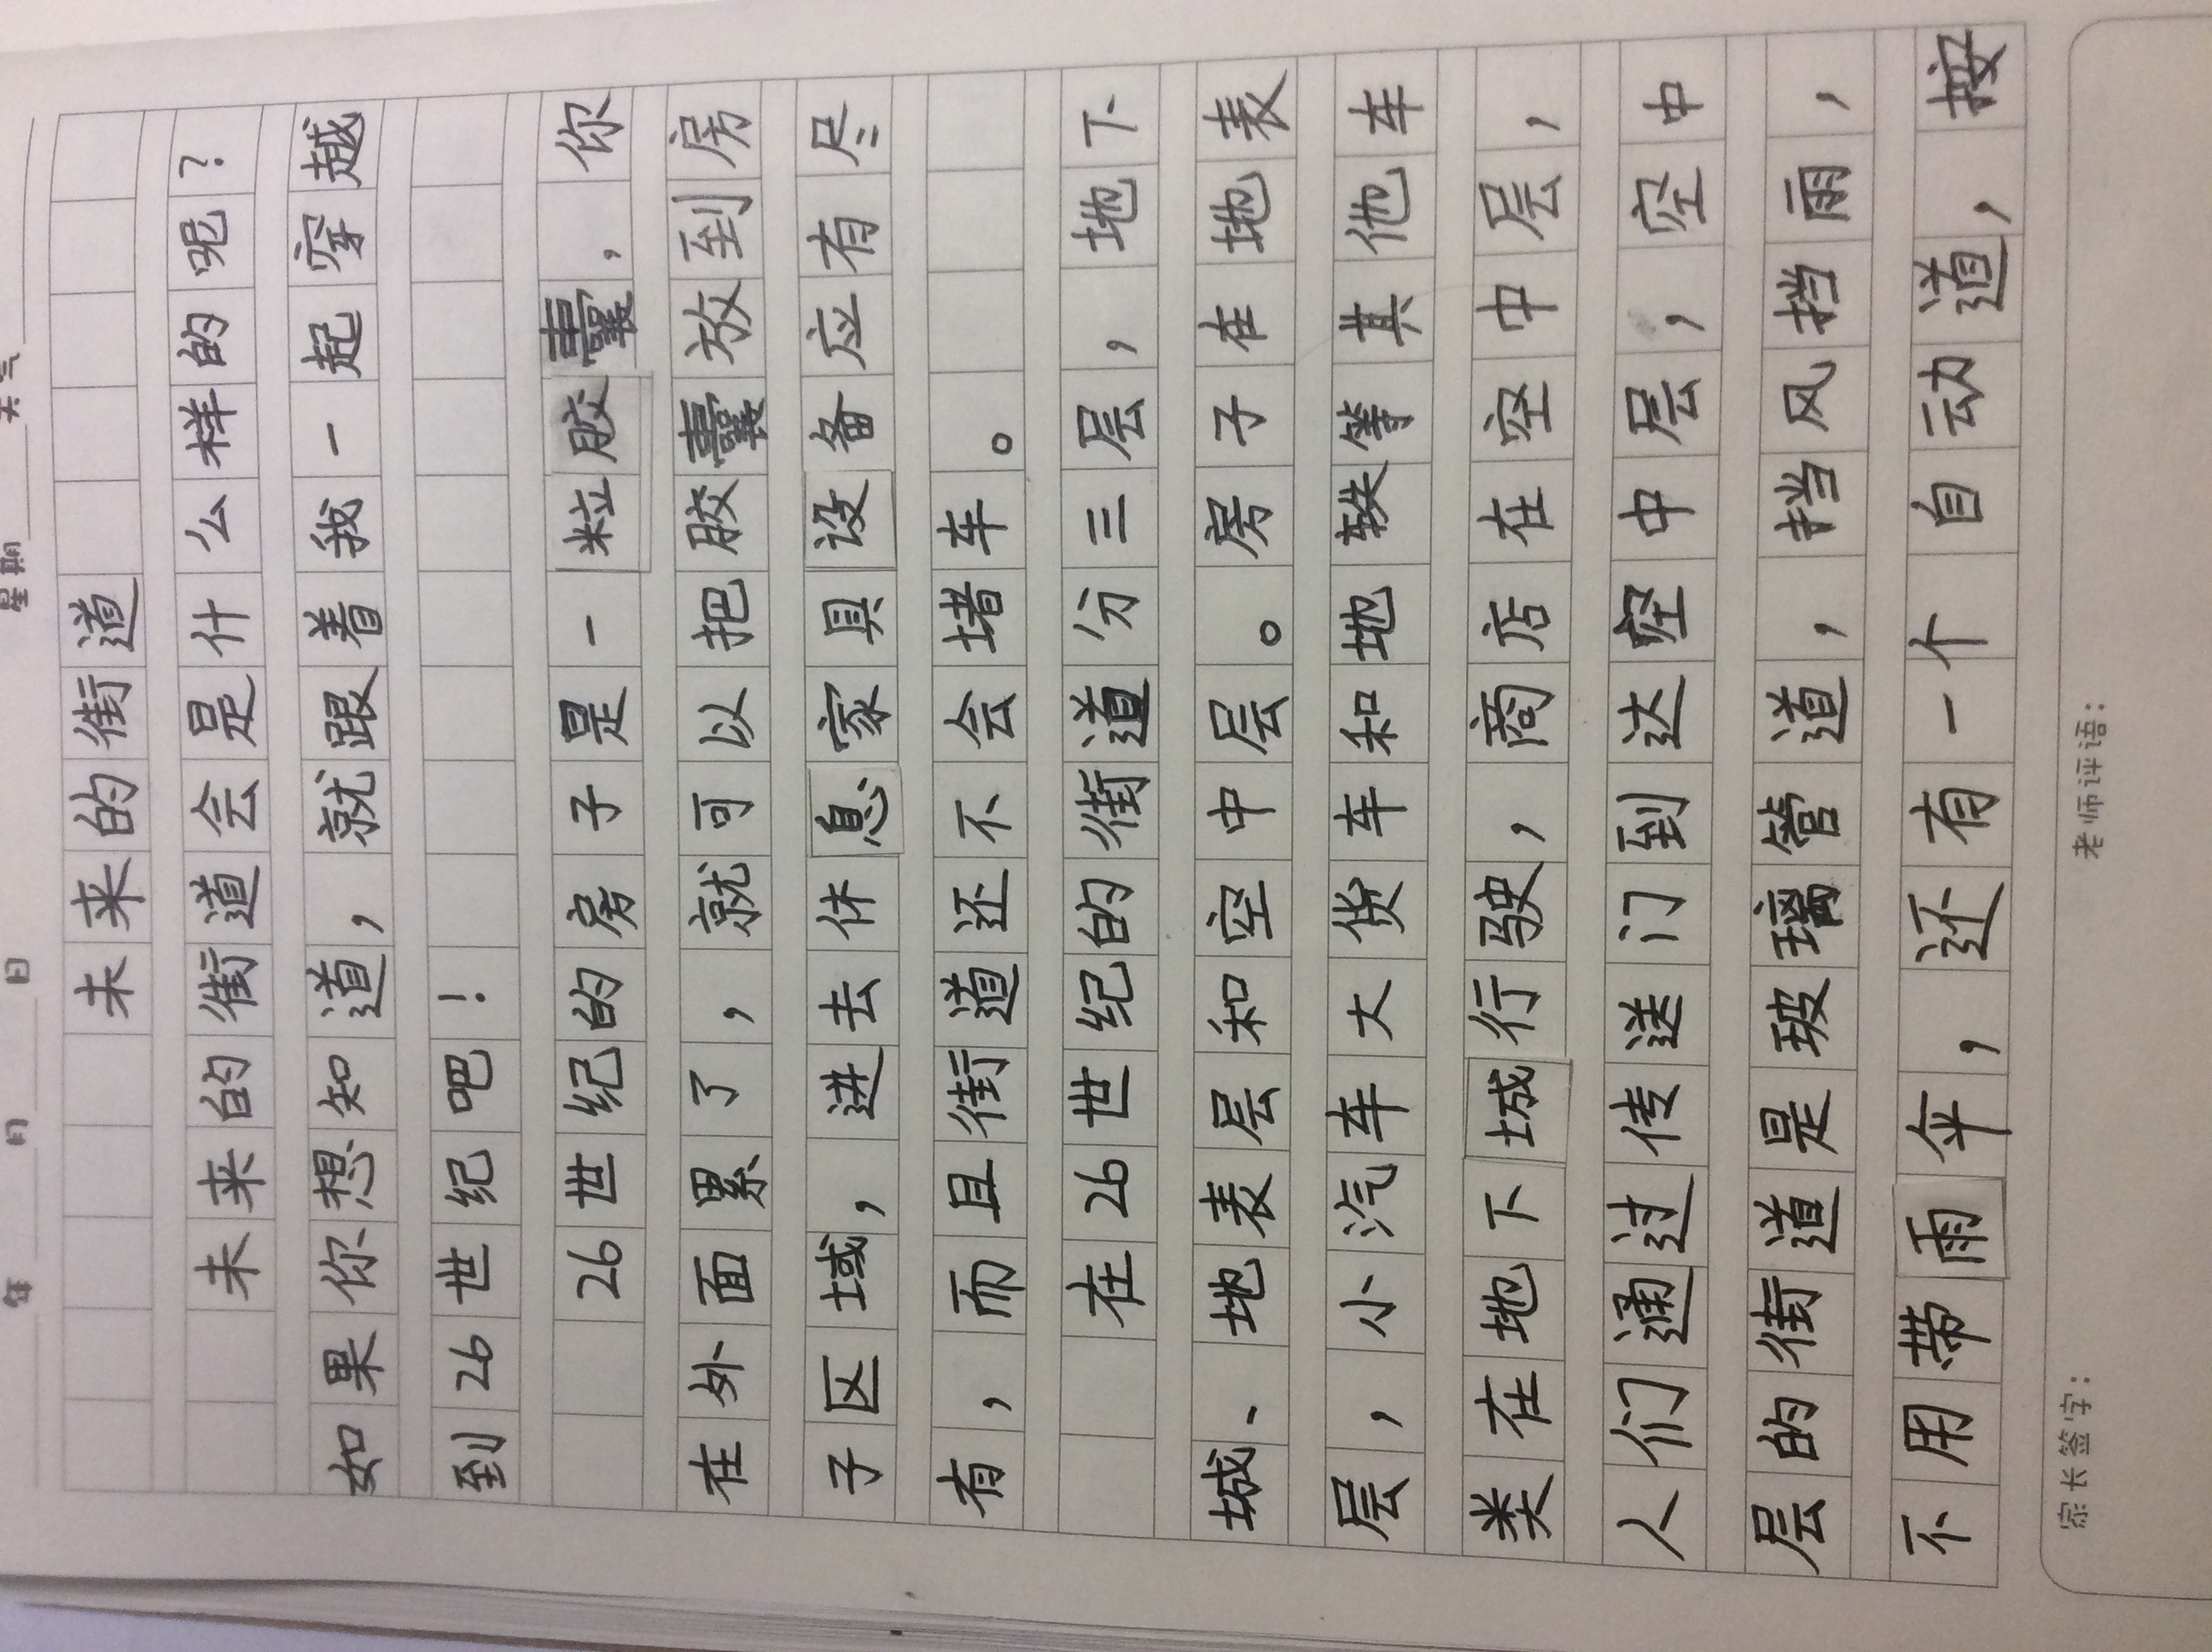 年 月 日 星期 天气
未来的街道
未来的街道会是什么样的呢?
如果你想知道,就跟着我一起穿越
到26世纪吧!
26世纪的房子是一粒胶囊,你
在外面累了,就可以把胶囊放到房
子区域,进去休息家具设备应有尽
有,而且街道还不会堵车。
在26世纪的街道分三层,地下
城、地表层和空中层。房子在地表
层,小汽车大货车和地铁等其他车
类在地下城行驶,商店在空中层,
人们通过传送门到达空中层,空中
层的街道是玻璃管道,挡风挡雨,
不用带雨伞,还有一个自动道,按
家长签字: 老师评语: